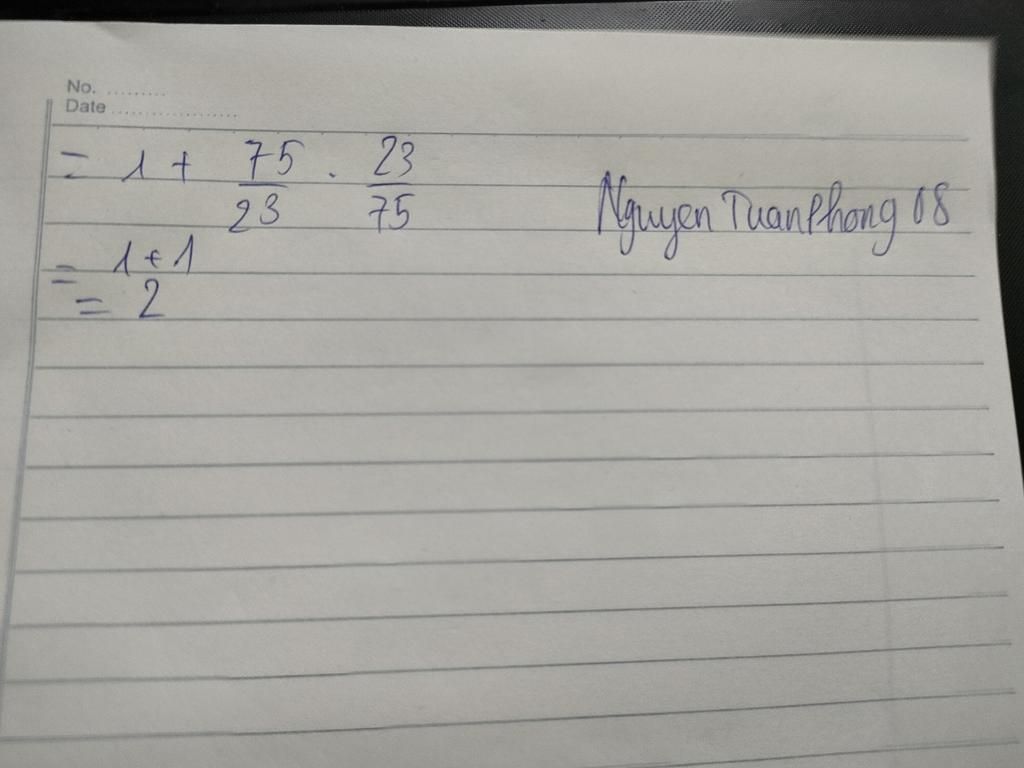 No. .........
Date ..................
= 1 + 75/23 . 23/75
Nguyen TuanPhong 08
= 1 + 1
= 2